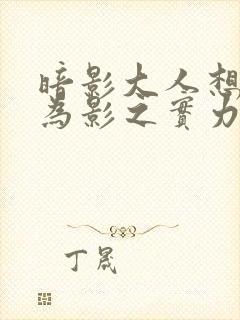 暗影大人想
為影之實力
丁晟